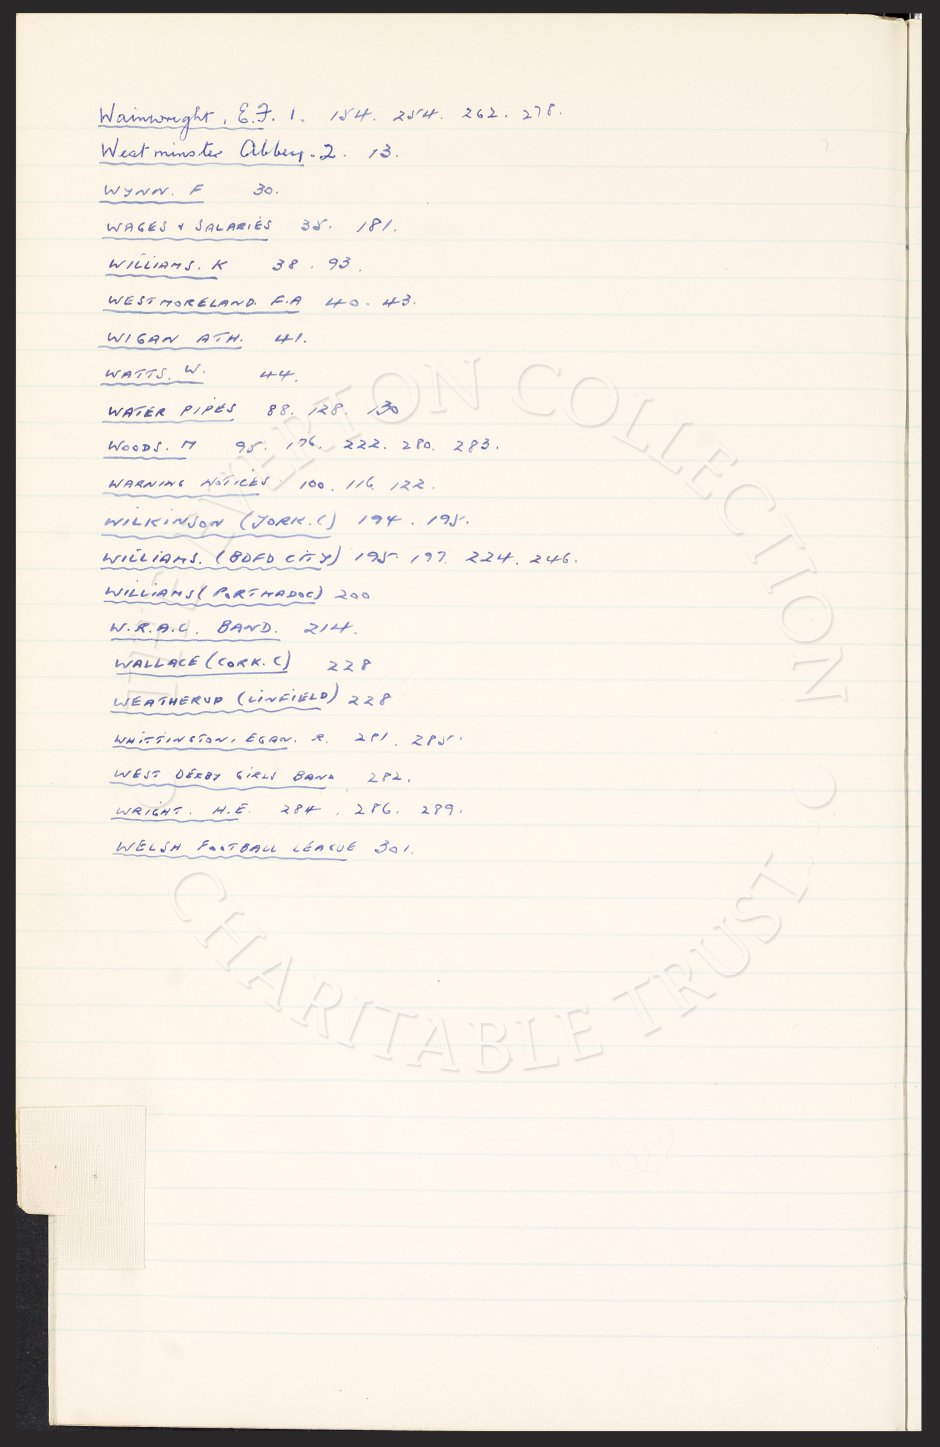 Wainwright, E.F. 1. 154. 254. 262. 278.
Westminster Abbey. 2. 13.
WYNN. F 30.
WAGES & SALARIES 35. 181.
WILLIAMS. K 38. 93.
WESTMORELAND. F.A 40. 43.
WIGAN ATH. 41.
WATTS. W. 44.
WATER PIPES 88. 128. 130
WOODS. M 95. 176. 222. 280. 283.
WARNING NOTICES 100. 116. 122.
WILKINSON (YORK.C) 194. 195.
WILLIAMS. (BDFD CITY) 195. 197. 224. 246.
WILLIAMS (PORTMADOC) 200
W.R.A.C. BAND. 214.
WALLACE (CORK.C) 228
WEATHERUP (LINFIELD) 228
WHITTINGTON. EGAN. R. 281. 285.
WEST DERBY GIRLS BAND 282.
WRIGHT. H.E. 284. 286. 289.
WELSH FOOTBALL LEAGUE 301.
THE EVERTON COLLECTION
CHARITABLE TRUST